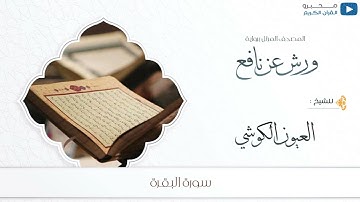 مخبرو
القرآن الكريم
المصحف المرتل برواية
ورش عن نافع
للشيخ :
العيون الكوشي
سورة البقرة